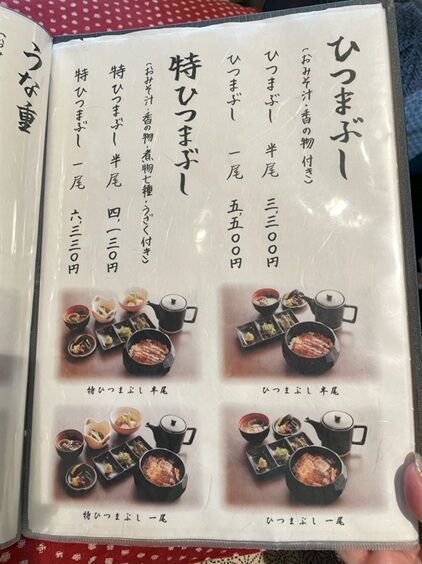 ひつまぶし
(おみそ汁・香の物 付き)
ひつまぶし 半尾 三、三〇〇円
ひつまぶし 一尾 五、五〇〇円
特ひつまぶし
(おみそ汁・香の物・煮物七種・うざく付き)
特ひつまぶし 半尾 四、一三〇円
特ひつまぶし 一尾 六、三三〇円
ひつまぶし 半尾
特ひつまぶし 半尾
ひつまぶし 一尾
特ひつまぶし 一尾
うな重